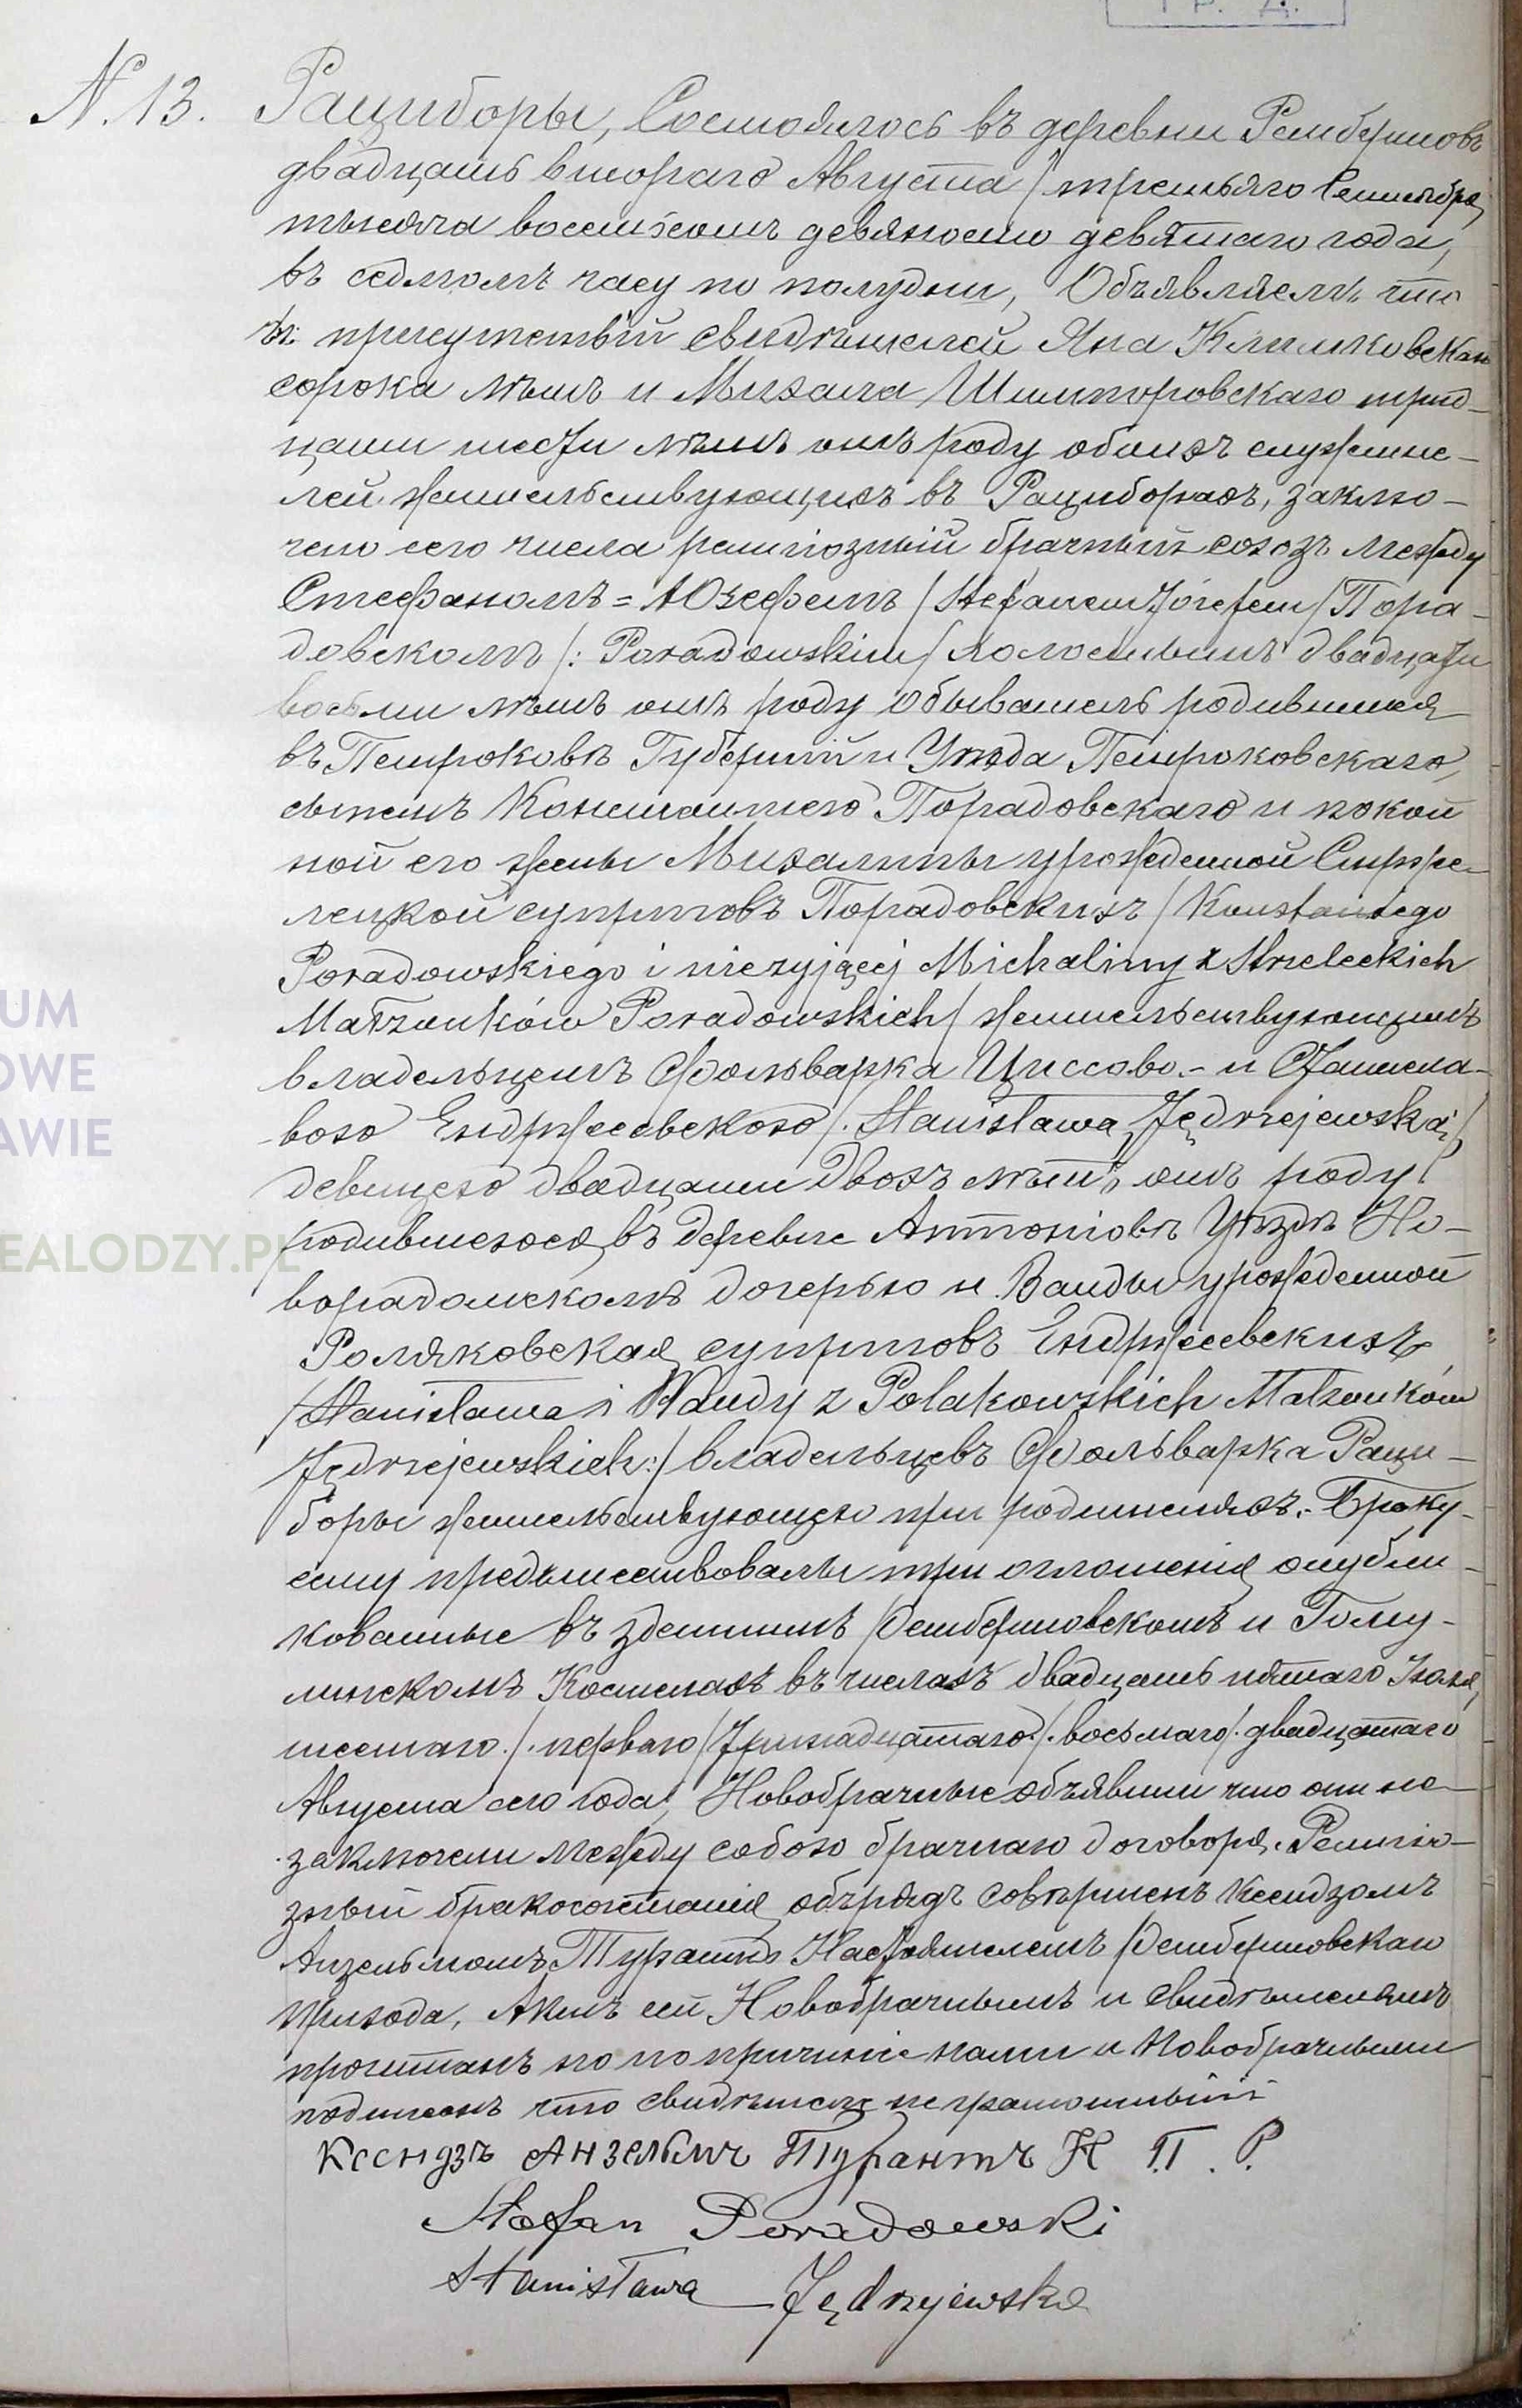 Гр. Д.
N. 13. Рациборы, Состоялось въ деревни Рембертовѣ
двадцать втораго Августа / третьяго Сентября
тысяча восемьсотъ девяносто девятаго года,
въ седмомъ часу по полудни, Объявляемъ что
въ присутствіи свидѣтелей Яна Климковскаго
сорока лѣтъ и Михала Шимпоровскаго трид-
цати шести лѣтъ отъ роду обоихъ служите-
лей жительствующихъ въ Рациборахъ, заклю-
чено сего числа религіозный брачный союзъ между
Стефаномъ = Юзефемъ / Stefanem Józefem / Пора-
довскомъ /: Poradowskim / холостымъ двадцати
восьми лѣтъ отъ роду обыватель родившимся
въ Петроковѣ Губерніи и Уѣзда Петроковскаго,
сыномъ Константего Порадовскаго и покой
ной его жены Михалины урожденной Стрже-
лецкой супруговъ Порадовскихъ / Konstantego
Poradowskiego i nieżyjącej Michaliny z Strzeleckich
Małżonków Poradowskich / жительствующимъ
владельцемъ Фольварка Циссово - и Станисла-
вою Ендржеевскою /. Stanisława Jędrzejewska /
девицею двадцати двохъ лѣтъ отъ роду
родившеюся въ деревне Антоніовѣ Уѣздѣ Но-
ворадомскомъ дочерью и Ванды урожденной
Поляковская супруговъ Ендржеевскихъ
/ Stanisława i Wandy z Polakowskich Małżonków
Jędrzejewskich :/ владельцевъ Фольварка Раци-
боры жительствующею при родителяхъ. Браку
сему предшествовалы три оглошенія опубли-
кованные въ здешнимъ Рембертовскомъ и
Костелахъ въ числахъ двадцать пятаго Іюля
шестаго /. перваго / тринадцатаго /. восьмаго /. двадцатаго
Августа сего года, Новобрачные объявили что они не-
заключели между собою брачнаго договоря. Религіо-
зный бракосочетанія обърядъ совершенъ Ксендзомъ
Анзельмомъ Турантъ Настоятелемъ Рембертовскаго
прихода, Актъ сей Новобрачнымъ и свидѣтелямъ
прочитанъ но по причине нами и Новобрачными
подписанъ что свидѣтели неграмотныи
Ксендзъ Анзельмъ Турантъ Н. П. Р.
Stefan Poradowski
Stanisława Jędrzejewska
UM
OWE
AWIE
EALODZY.PL